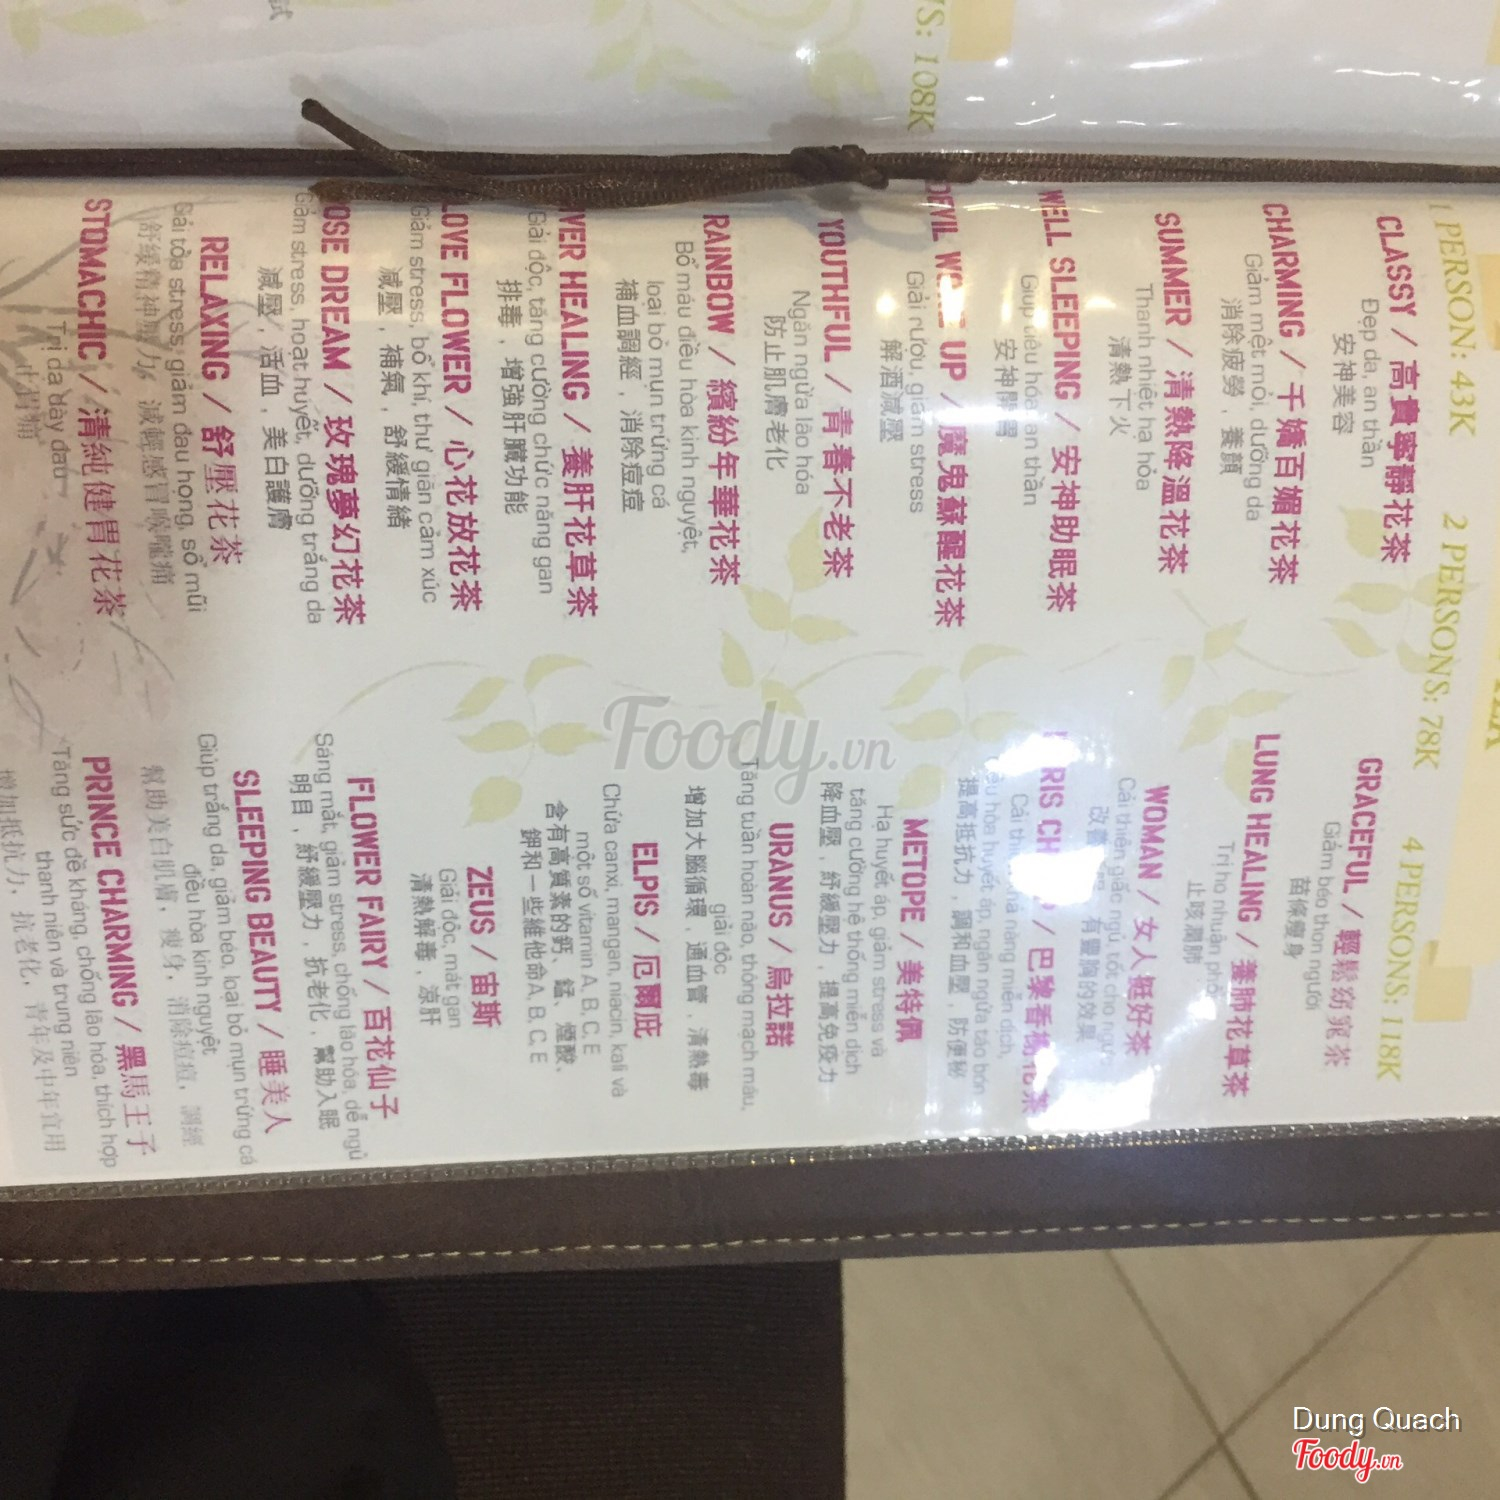 1 PERSON: 43K 2 PERSONS: 78K 4 PERSONS: 118K
CLASSY / 高貴寧靜花茶
Đẹp da, an thần
安神美容
CHARMING / 千嬌百媚花茶
Giảm mệt mỏi, dưỡng da
消除疲勞，養顏
SUMMER / 清熱降溫花茶
Thanh nhiệt hạ hỏa
清熱下火
WELL SLEEPING / 安神助眠茶
Giúp tiêu hóa, an thần
安神開胃
DEVIL WOKE UP / 魔鬼蘇醒花茶
Giải rượu, giảm stress
解酒減壓
YOUTHFUL / 青春不老茶
Ngăn ngừa lão hóa
防止肌膚老化
RAINBOW / 繽紛年華花茶
Bổ máu điều hòa kinh nguyệt,
loại bỏ mụn trứng cá
補血調經，消除痘痘
VER HEALING / 養肝花草茶
Giải độc, tăng cường chức năng gan
排毒，增強肝臟功能
LOVE FLOWER / 心花放花茶
Giảm stress, bổ khí, thư giãn cảm xúc
減壓，補氣，舒緩情緒
OSE DREAM / 玫瑰夢幻花茶
Giảm stress, hoạt huyết, dưỡng trắng da
減壓，活血，美白護膚
RELAXING / 舒壓花茶
Giải tỏa stress, giảm đau họng, sổ mũi
舒緩精神壓力，減輕感冒喉嚨痛
STOMACHIC / 清純健胃花茶
Trị dạ dày đau
止胃痛
GRACEFUL / 輕鬆窈窕茶
Giảm béo thon người
苗條瘦身
LUNG HEALING / 養肺花草茶
Trị ho nhuận phổi
止咳潤肺
WOMAN / 女人挺好茶
Cải thiện giấc ngủ, tốt cho ngực
改善 有豐胸的效果
RIS CH / 巴黎香榭花茶
Cải thiện khả năng miễn dịch,
điều hòa huyết áp, ngăn ngừa táo bón
提高抵抗力，調和血壓，防便秘
METOPE / 美特佩
Hạ huyết áp, giảm stress và
tăng cường hệ thống miễn dịch
降血壓，紓緩壓力，提高免疫力
URANUS / 烏拉諾
Tăng tuần hoàn não, thông mạch máu,
giải độc
增加大腦循環，通血管，清熱毒
ELPIS / 厄爾庇
Chứa canxi, mangan, niacin, kali và
một số vitamin A, B, C, E
含有高質素的鈣、錳、煙酸、
鉀和一些維他命A, B, C, E
ZEUS / 宙斯
Giải độc, mát gan
清熱解毒，涼肝
FLOWER FAIRY / 百花仙子
Sáng mắt, giảm stress, chống lão hóa, dễ ngủ
明目，紓緩壓力，抗老化，幫助入眠
SLEEPING BEAUTY / 睡美人
Giúp trắng da, giảm béo, loại bỏ mụn trứng cá
điều hòa kinh nguyệt
幫助美白肌膚，瘦身，消除痘痘，調經
PRINCE CHARMING / 黑馬王子
Tăng sức đề kháng, chống lão hóa, thích hợp
thanh niên và trung niên
增加抵抗力，抗老化，青年及中年食用
S: 108K
試
Foody.vn
Dung Quach
Foody.vn